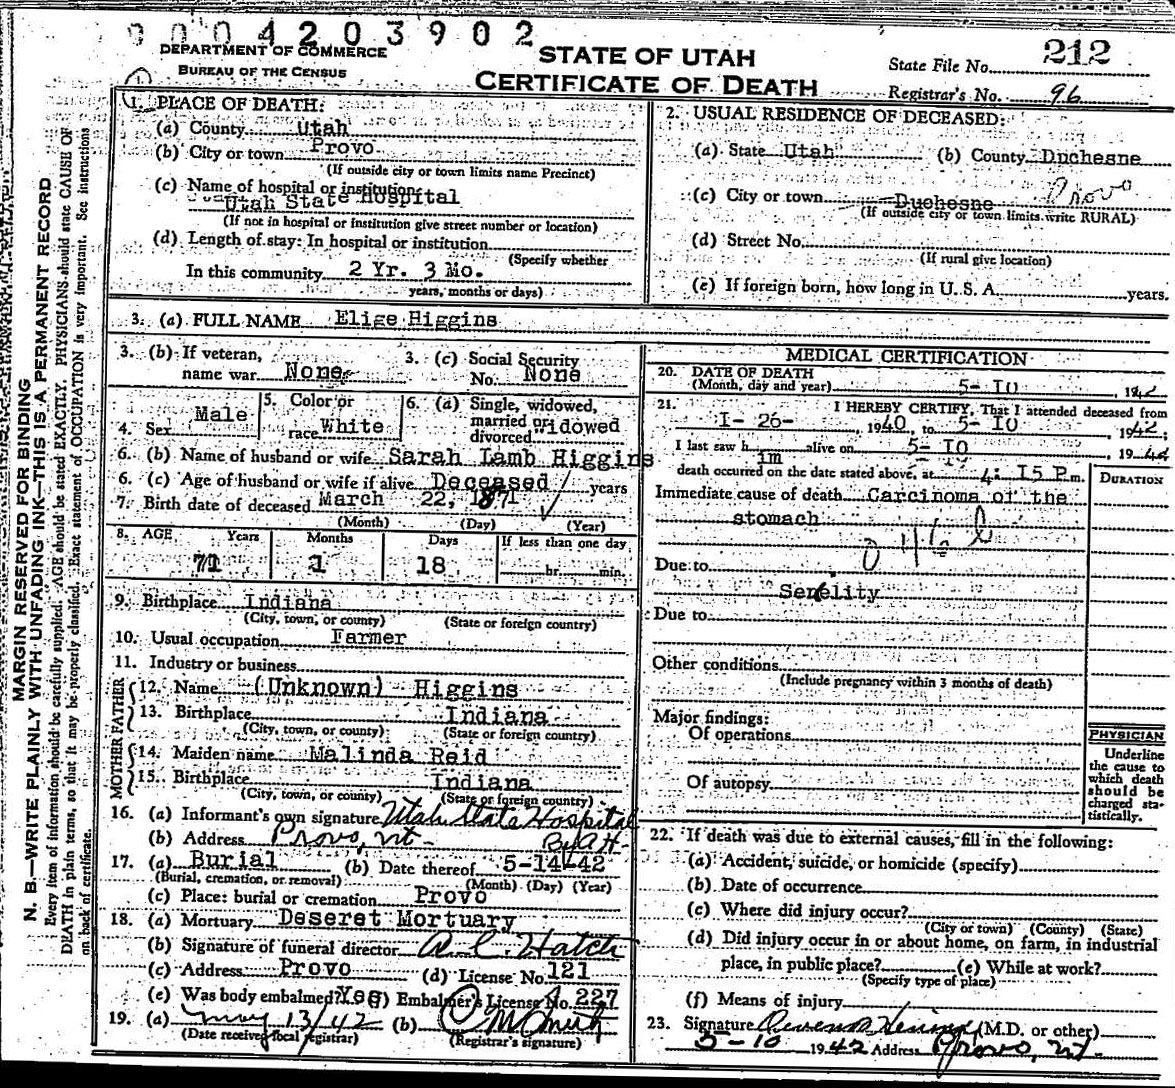 0004203902
DEPARTMENT OF COMMERCE
BUREAU OF THE CENSUS
STATE OF UTAH
CERTIFICATE OF DEATH
State File No. 212
Registrar's No. 96
MARGIN RESERVED FOR BINDING
N. B.—WRITE PLAINLY WITH UNFADING INK—THIS IS A PERMANENT RECORD
Every item of information should be carefully supplied. AGE should be stated EXACTLY. PHYSICIANS should state CAUSE OF
DEATH in plain terms, so that it may be properly classified. Exact statement of OCCUPATION is very important. See instructions
on back of certificate.
1. PLACE OF DEATH:
(a) County Utah
(b) City or town Provo
(If outside city or town limits name Precinct)
(c) Name of hospital or institution:
Utah State Hospital
(If not in hospital or institution give street number or location)
(d) Length of stay: In hospital or institution
(Specify whether
In this community 2 Yr. 3 Mo.
years, months or days)
2. USUAL RESIDENCE OF DECEASED:
(a) State Utah (b) County Duchesne
(c) City or town Duchesne Provo
(If outside city or town limits write RURAL)
(d) Street No.
(If rural give location)
(e) If foreign born, how long in U. S. A. years.
3. (a) FULL NAME Elige Higgins
3. (b) If veteran, name war None
3. (c) Social Security No. None
4. Sex Male
5. Color or race White
6. (a) Single, widowed, married or divorced Widowed
6. (b) Name of husband or wife Sarah Lamb Higgins
6. (c) Age of husband or wife if alive Deceased years
7. Birth date of deceased March 22, 1871
(Month) (Day) (Year)
8. AGE Years Months Days If less than one day
71 1 18 hr. min.
9. Birthplace Indiana
(City, town, or county) (State or foreign country)
10. Usual occupation Farmer
11. Industry or business
FATHER
12. Name (Unknown) Higgins
13. Birthplace Indiana
(City, town, or county) (State or foreign country)
MOTHER
14. Maiden name Malinda Reid
15. Birthplace Indiana
(City, town, or county) (State or foreign country)
16. (a) Informant's own signature Utah State Hospital
(b) Address Provo, Ut. By
17. (a) Burial (b) Date thereof 5-14-42
(Burial, cremation, or removal) (Month) (Day) (Year)
(c) Place: burial or cremation Provo
18. (a) Mortuary Deseret Mortuary
(b) Signature of funeral director A. C. Hatch
(c) Address Provo (d) License No. 121
(e) Was body embalmed? Yes (f) Embalmer's License No. 227
19. (a) May 13/42 (b)
(Date received local registrar) (Registrar's signature)
MEDICAL CERTIFICATION
20. DATE OF DEATH
(Month, day and year) 5-10 1942
21. I HEREBY CERTIFY, That I attended deceased from
1-26- , 1940, to 5-10 , 1942;
I last saw him alive on 5-10 1942
death occurred on the date stated above, at 4:15 P.m.
DURATION
Immediate cause of death Carcinoma of the
stomach
Due to
Senility
Due to
Other conditions
(Include pregnancy within 3 months of death)
Major findings:
Of operations
Of autopsy
PHYSICIAN
Underline
the cause to
which death
should be
charged sta-
tistically.
22. If death was due to external causes, fill in the following:
(a) Accident, suicide, or homicide (specify)
(b) Date of occurrence
(c) Where did injury occur?
(City or town) (County) (State)
(d) Did injury occur in or about home, on farm, in industrial
place, in public place? (e) While at work?
(Specify type of place)
(f) Means of injury
23. Signature (M.D. or other)
5-10 1942 Address Provo, Ut.